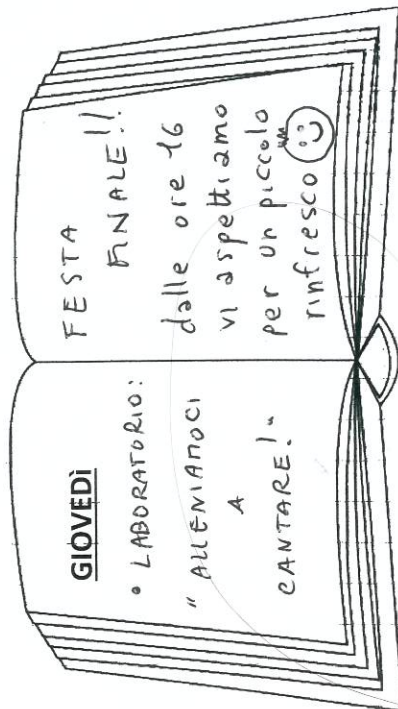 GIOVEDÌ
• LABORATORIO:
"ALLENIAMOCI
A
CANTARE!"
FESTA
FINALE!!
dalle ore 16
vi aspettiamo
per un piccolo
rinfresco